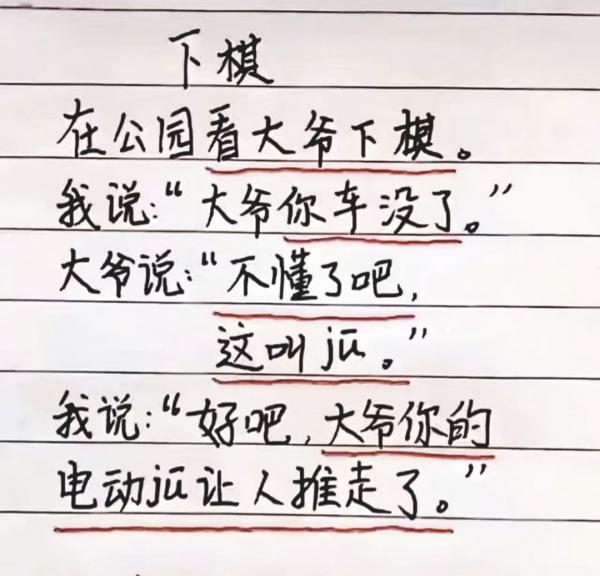 下棋
在公园看大爷下棋。
我说:“大爷你车没了。”
大爷说:“不懂了吧,
这叫jū。”
我说:“好吧,大爷你的
电动jū让人推走了。”